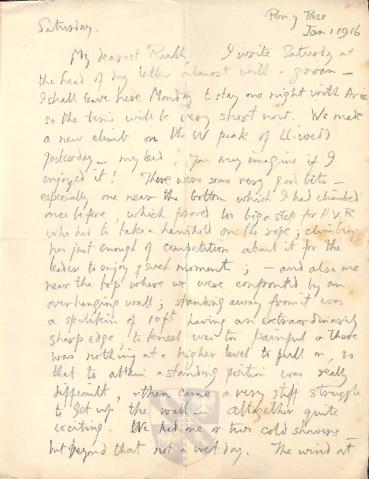 Pen y Pass
Jan 1 1916
Saturday.
My dearest Ruth I write Saturday at
the head of my letter almost with a groan –
I shall leave here Monday to stay one night with Avie
so the time will be very short now. We made
a new climb on the W peak of Lliwedd
yesterday – my lead, you may imagine if I
enjoyed it! There were some very good bits –
especially one near the bottom which I had climbed
once before, which proved too big a step for H.V.R
who had to take a handhold on the rope; climbing
has just enough of competition about it for the
leader to enjoy such moments; – and also one
near the top where we were confronted by an
overhanging wall; standing away from it was
a splitskin of 10ft having an extraordinarily
sharp edge, to kneel was too painful & there
was nothing at a higher level to pull on, so
that to attain a standing position was really
difficult, & then came a very stiff struggle
to get up the wall – altogether quite
exciting. We had one or two cold showers
but beyond that not a wet day. The wind at